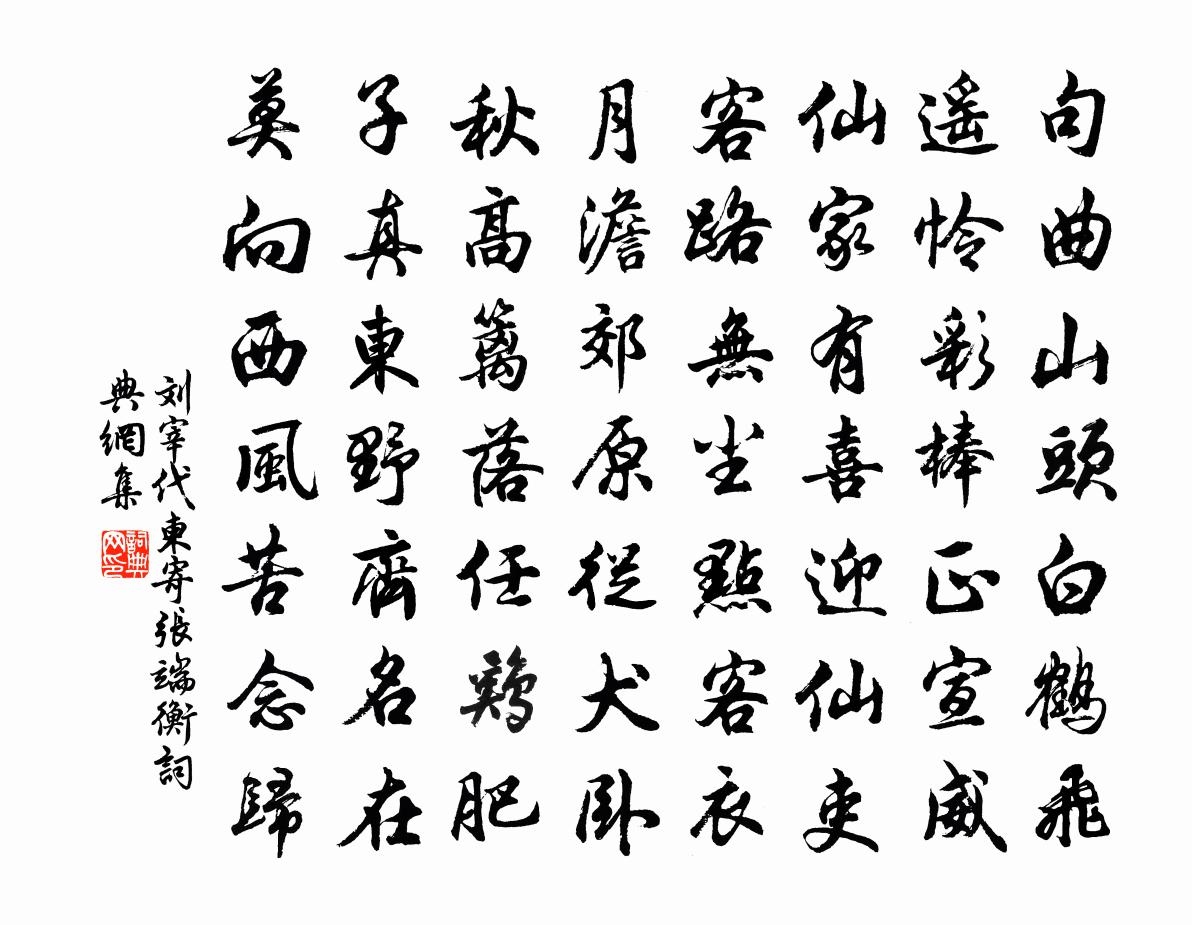 句曲山頭白鶴飛
遥怜彩棒正宣威
仙家有喜迎仙吏
客路無尘點客衣
月澹郊原從犬卧
秋高篱落任鷄肥
子真東野齊名在
莫向西風苦念歸
刘宰代柬寄張端衡詞
典網集
詞典
网印